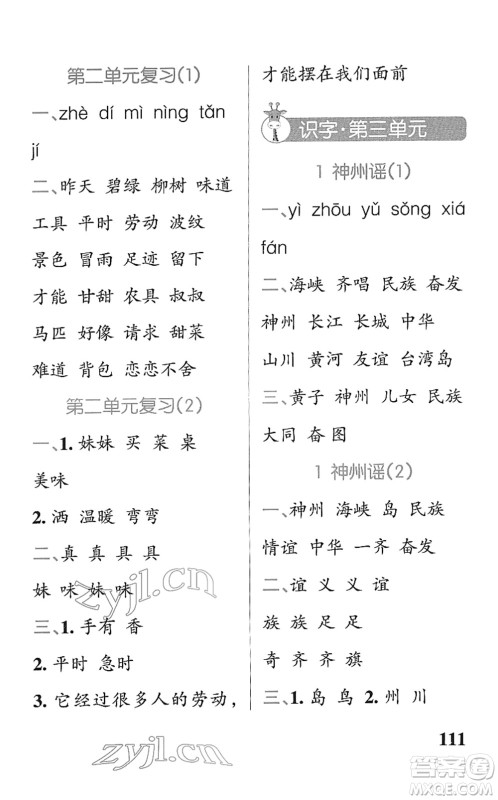 第二单元复习(1)
一、zhè dí mì nìng tǎn
jí
二、昨天 碧绿 柳树 味道
工具 平时 劳动 波纹
景色 冒雨 足迹 留下
才能 甘甜 农具 叔叔
马匹 好像 请求 甜菜
难道 背包 恋恋不舍
第二单元复习(2)
一、1. 妹妹 买 菜 桌
美味
2. 洒 温暖 弯弯
二、真 真 具 具
妹 味 妹 味
三、1. 手 有 香
2. 平时 急时
3. 它经过很多人的劳动，
才能摆在我们面前
识字·第三单元
1 神州谣(1)
一、yì zhōu yǔ sǒng xiá
fán
二、海峡 齐唱 民族 奋发
神州 长江 长城 中华
山川 黄河 友谊 台湾岛
三、黄子 神州 儿女 民族
大同 奋 图
1 神州谣(2)
一、神州 海峡 岛 民族
情谊 中华 一齐 奋发
二、谊 义 义 谊
族 族 足 足
奇 齐 齐 旗
三、1. 岛 鸟 2. 州 川
zyjl.cn
zyjl.cn
111
答案圈
MXQE.COM